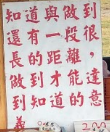 知道與做到,
還有一段很
長的距離,
做到才能達
到知道的意
義